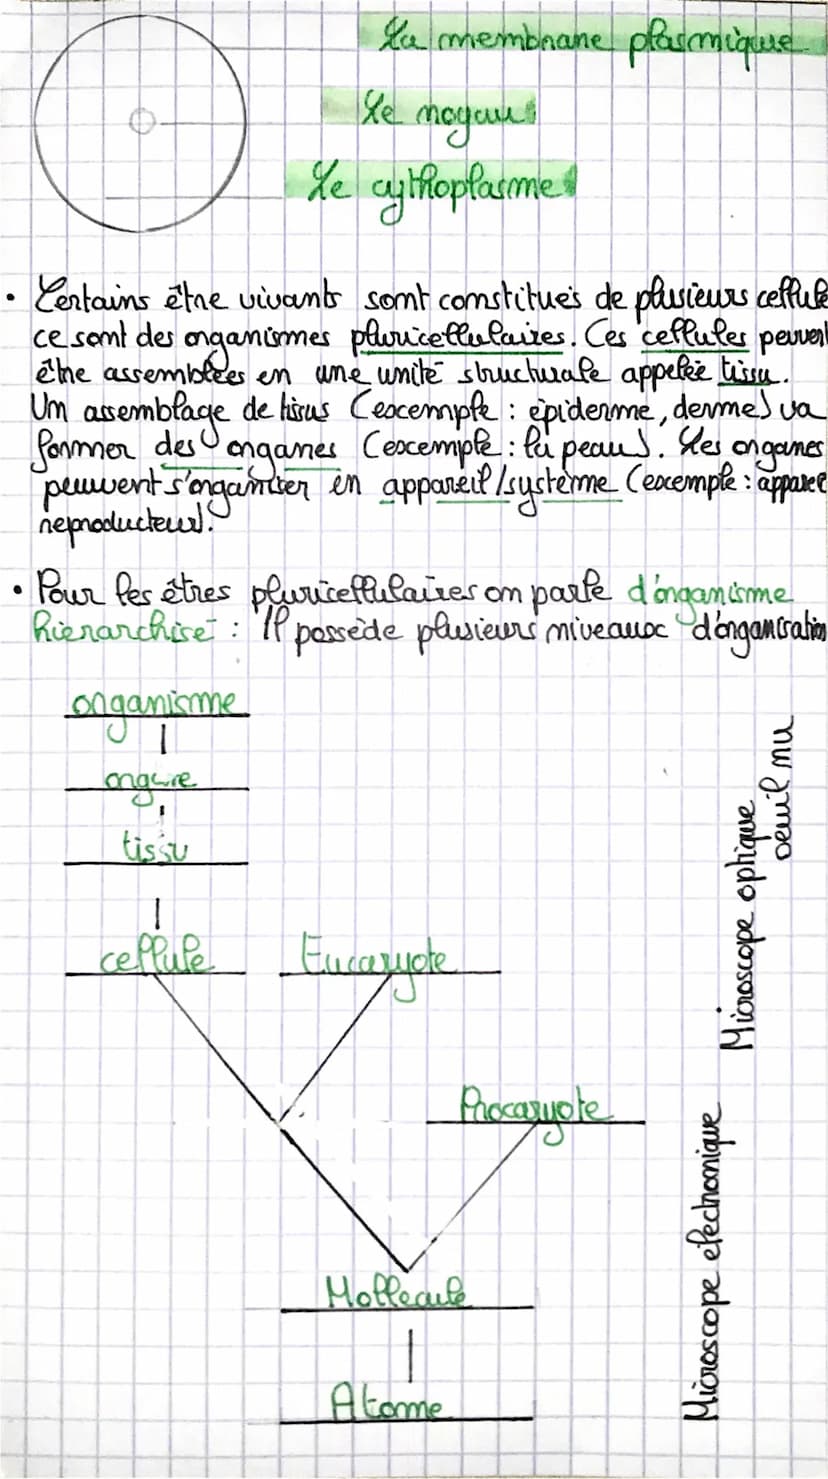 La membrane plasmique
Le noyau
Le cythoplasme
• Certains être vivants sont constitués de plusieurs cellule
ce sont des organismes pluricellulaires. Ces cellules peuven
être assemblées en une unité structurale appelée tissu.
Un assemblage de tissus (exemple : épiderme, derme) va
former des organes (exemple : la peau). Les organes
peuvent s'organiser en appareil/système (exemple : appareil
reproducteur).
• Pour les êtres pluricellulaires on parle d'organisme
hiérarchisé : Il possède plusieurs niveaux d'organisation
organisme
organe
tissu
cellule Eucaryote
Procaryote
Mollecule
Atome
oeuil nu
Microscope optique
Microscope electronique